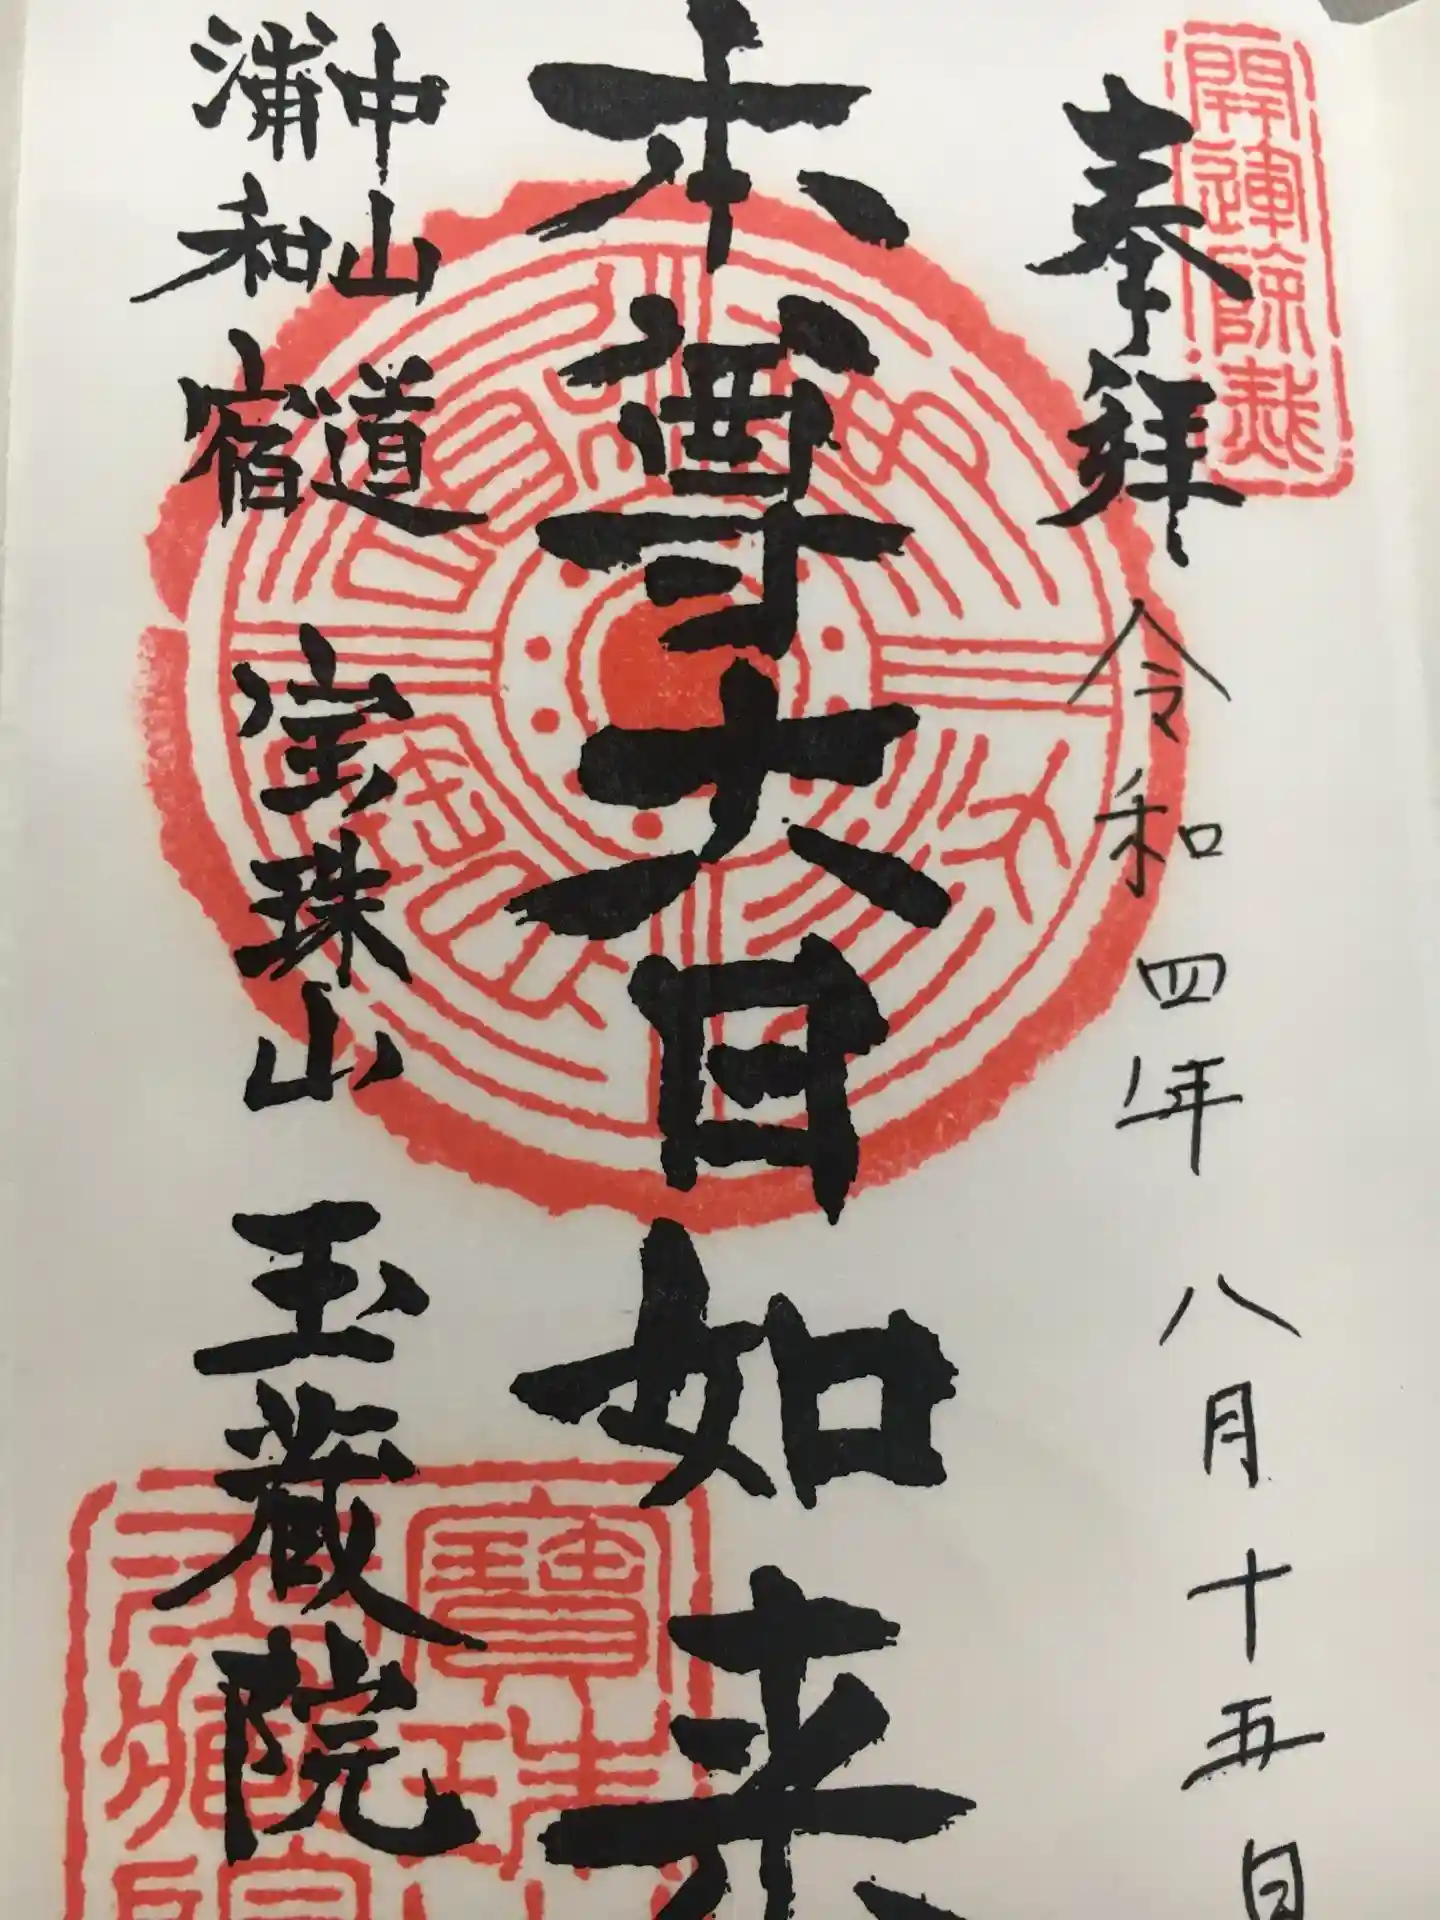 開運除災
奉拝
令和四年 八月十五日
本尊大日如来
中山道
浦和宿
宝珠山 玉蔵院